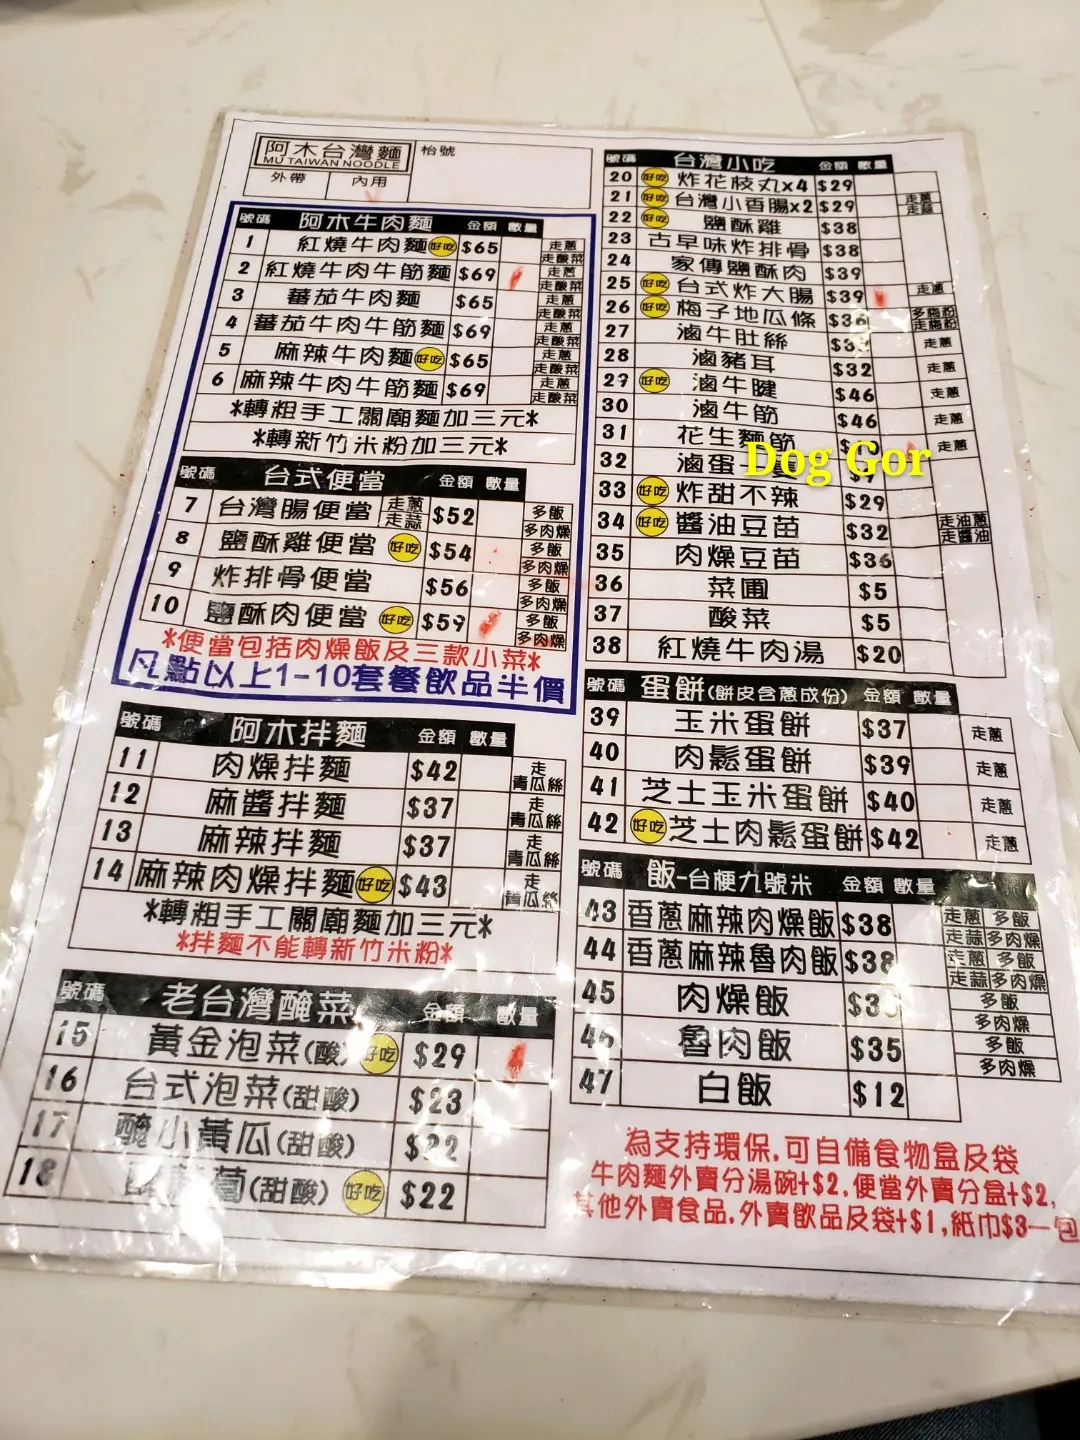 阿木台灣麵
MU TAIWAN NOODLE
枱號
外帶 內用
號碼 阿木牛肉麵 金額 數量
1 紅燒牛肉麵 好吃 $65 走蔥 走酸菜
2 紅燒牛肉牛筋麵 $69 走蔥 走酸菜
3 蕃茄牛肉麵 $65 走蔥 走酸菜
4 蕃茄牛肉牛筋麵 $69 走蔥 走酸菜
5 麻辣牛肉麵 好吃 $65 走蔥 走酸菜
6 麻辣牛肉牛筋麵 $69 走蔥 走酸菜
*轉粗手工關廟麵加三元*
*轉新竹米粉加三元*
號碼 台式便當 金額 數量
7 台灣腸便當 走蔥 走蒜 $52 多飯 多肉燥
8 鹽酥雞便當 好吃 $54 多飯 多肉燥
9 炸排骨便當 $56 多飯 多肉燥
10 鹽酥肉便當 好吃 $59 多飯 多肉燥
*便當包括肉燥飯及三款小菜*
凡點以上1-10套餐飲品半價
號碼 阿木拌麵 金額 數量
11 肉燥拌麵 $42 走青瓜絲
12 麻醬拌麵 $37 走青瓜絲
13 麻辣拌麵 $37 走青瓜絲
14 麻辣肉燥拌麵 好吃 $43 走青瓜絲
*轉粗手工關廟麵加三元*
*拌麵不能轉新竹米粉*
號碼 老台灣醃菜 金額 數量
15 黃金泡菜(酸) 好吃 $29
16 台式泡菜(甜酸) $23
17 醃小黃瓜(甜酸) $22
18 (甜酸) 好吃 $22
號碼 台灣小吃 金額 數量
20 好吃 炸花枝丸x4 $29
21 好吃 台灣小香腸x2 $29 走蔥 走蒜
22 好吃 鹽酥雞 $38
23 古早味炸排骨 $38
24 家傳鹽酥肉 $39
25 好吃 台式炸大腸 $39 走蔥
26 好吃 梅子地瓜條 $36 多梅粉 走梅粉
27 滷牛肚絲 走蔥
28 滷豬耳 $32 走蔥
29 好吃 滷牛腱 $46 走蔥
30 滷牛筋 $46 走蔥
31 花生麵筋 走蔥
32 滷蛋一隻 $9
33 好吃 炸甜不辣 $29
34 好吃 醬油豆苗 $32 走油蔥 走醬油
35 肉燥豆苗 $36
36 菜圃 $5
37 酸菜 $5
38 紅燒牛肉湯 $20
號碼 蛋餅(餅皮含蔥成份) 金額 數量
39 玉米蛋餅 $37 走蔥
40 肉鬆蛋餅 $39 走蔥
41 芝士玉米蛋餅 $40 走蔥
42 好吃 芝士肉鬆蛋餅 $42 走蔥
號碼 飯-台梗九號米 金額 數量
43 香蔥麻辣肉燥飯 $38 走蔥 多飯 走蒜 多肉燥
44 香蔥麻辣魯肉飯 $38 走蔥 多飯 走蒜 多肉燥
45 肉燥飯 多飯 多肉燥
46 魯肉飯 $35 多飯 多肉燥
47 白飯 $12
為支持環保,可自備食物盒及袋
牛肉麵外賣分湯碗+$2,便當外賣分盒+$2,
其他外賣食品,外賣飲品及袋+$1,紙巾$3一包
Dog Gor